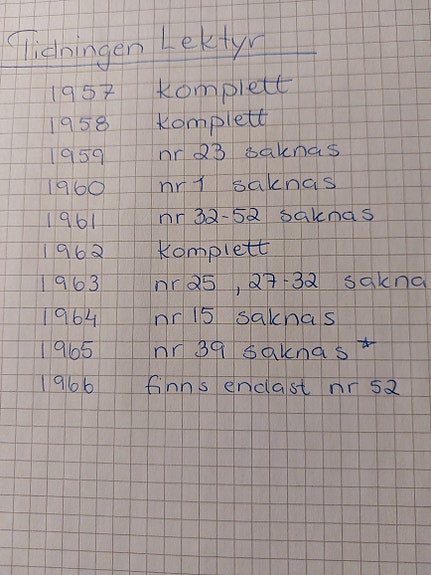 Tidningen Lektyr
1957 komplett
1958 komplett
1959 nr 23 saknas
1960 nr 1 saknas
1961 nr 32-52 saknas
1962 komplett
1963 nr 25, 27-32 sakna
1964 nr 15 saknas
1965 nr 39 saknas *
1966 finns endast nr 52